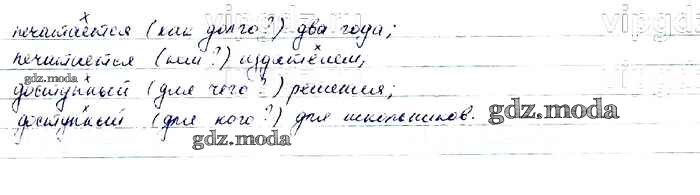 vipgdz.ru vipgdz
печатается (как долго?) два года;
печатается (кем?) издателем;
gdz.moda
доступный (для чего?) решения;
доступный (для кого?) для школьников.
gdz.moda
gdz.moda